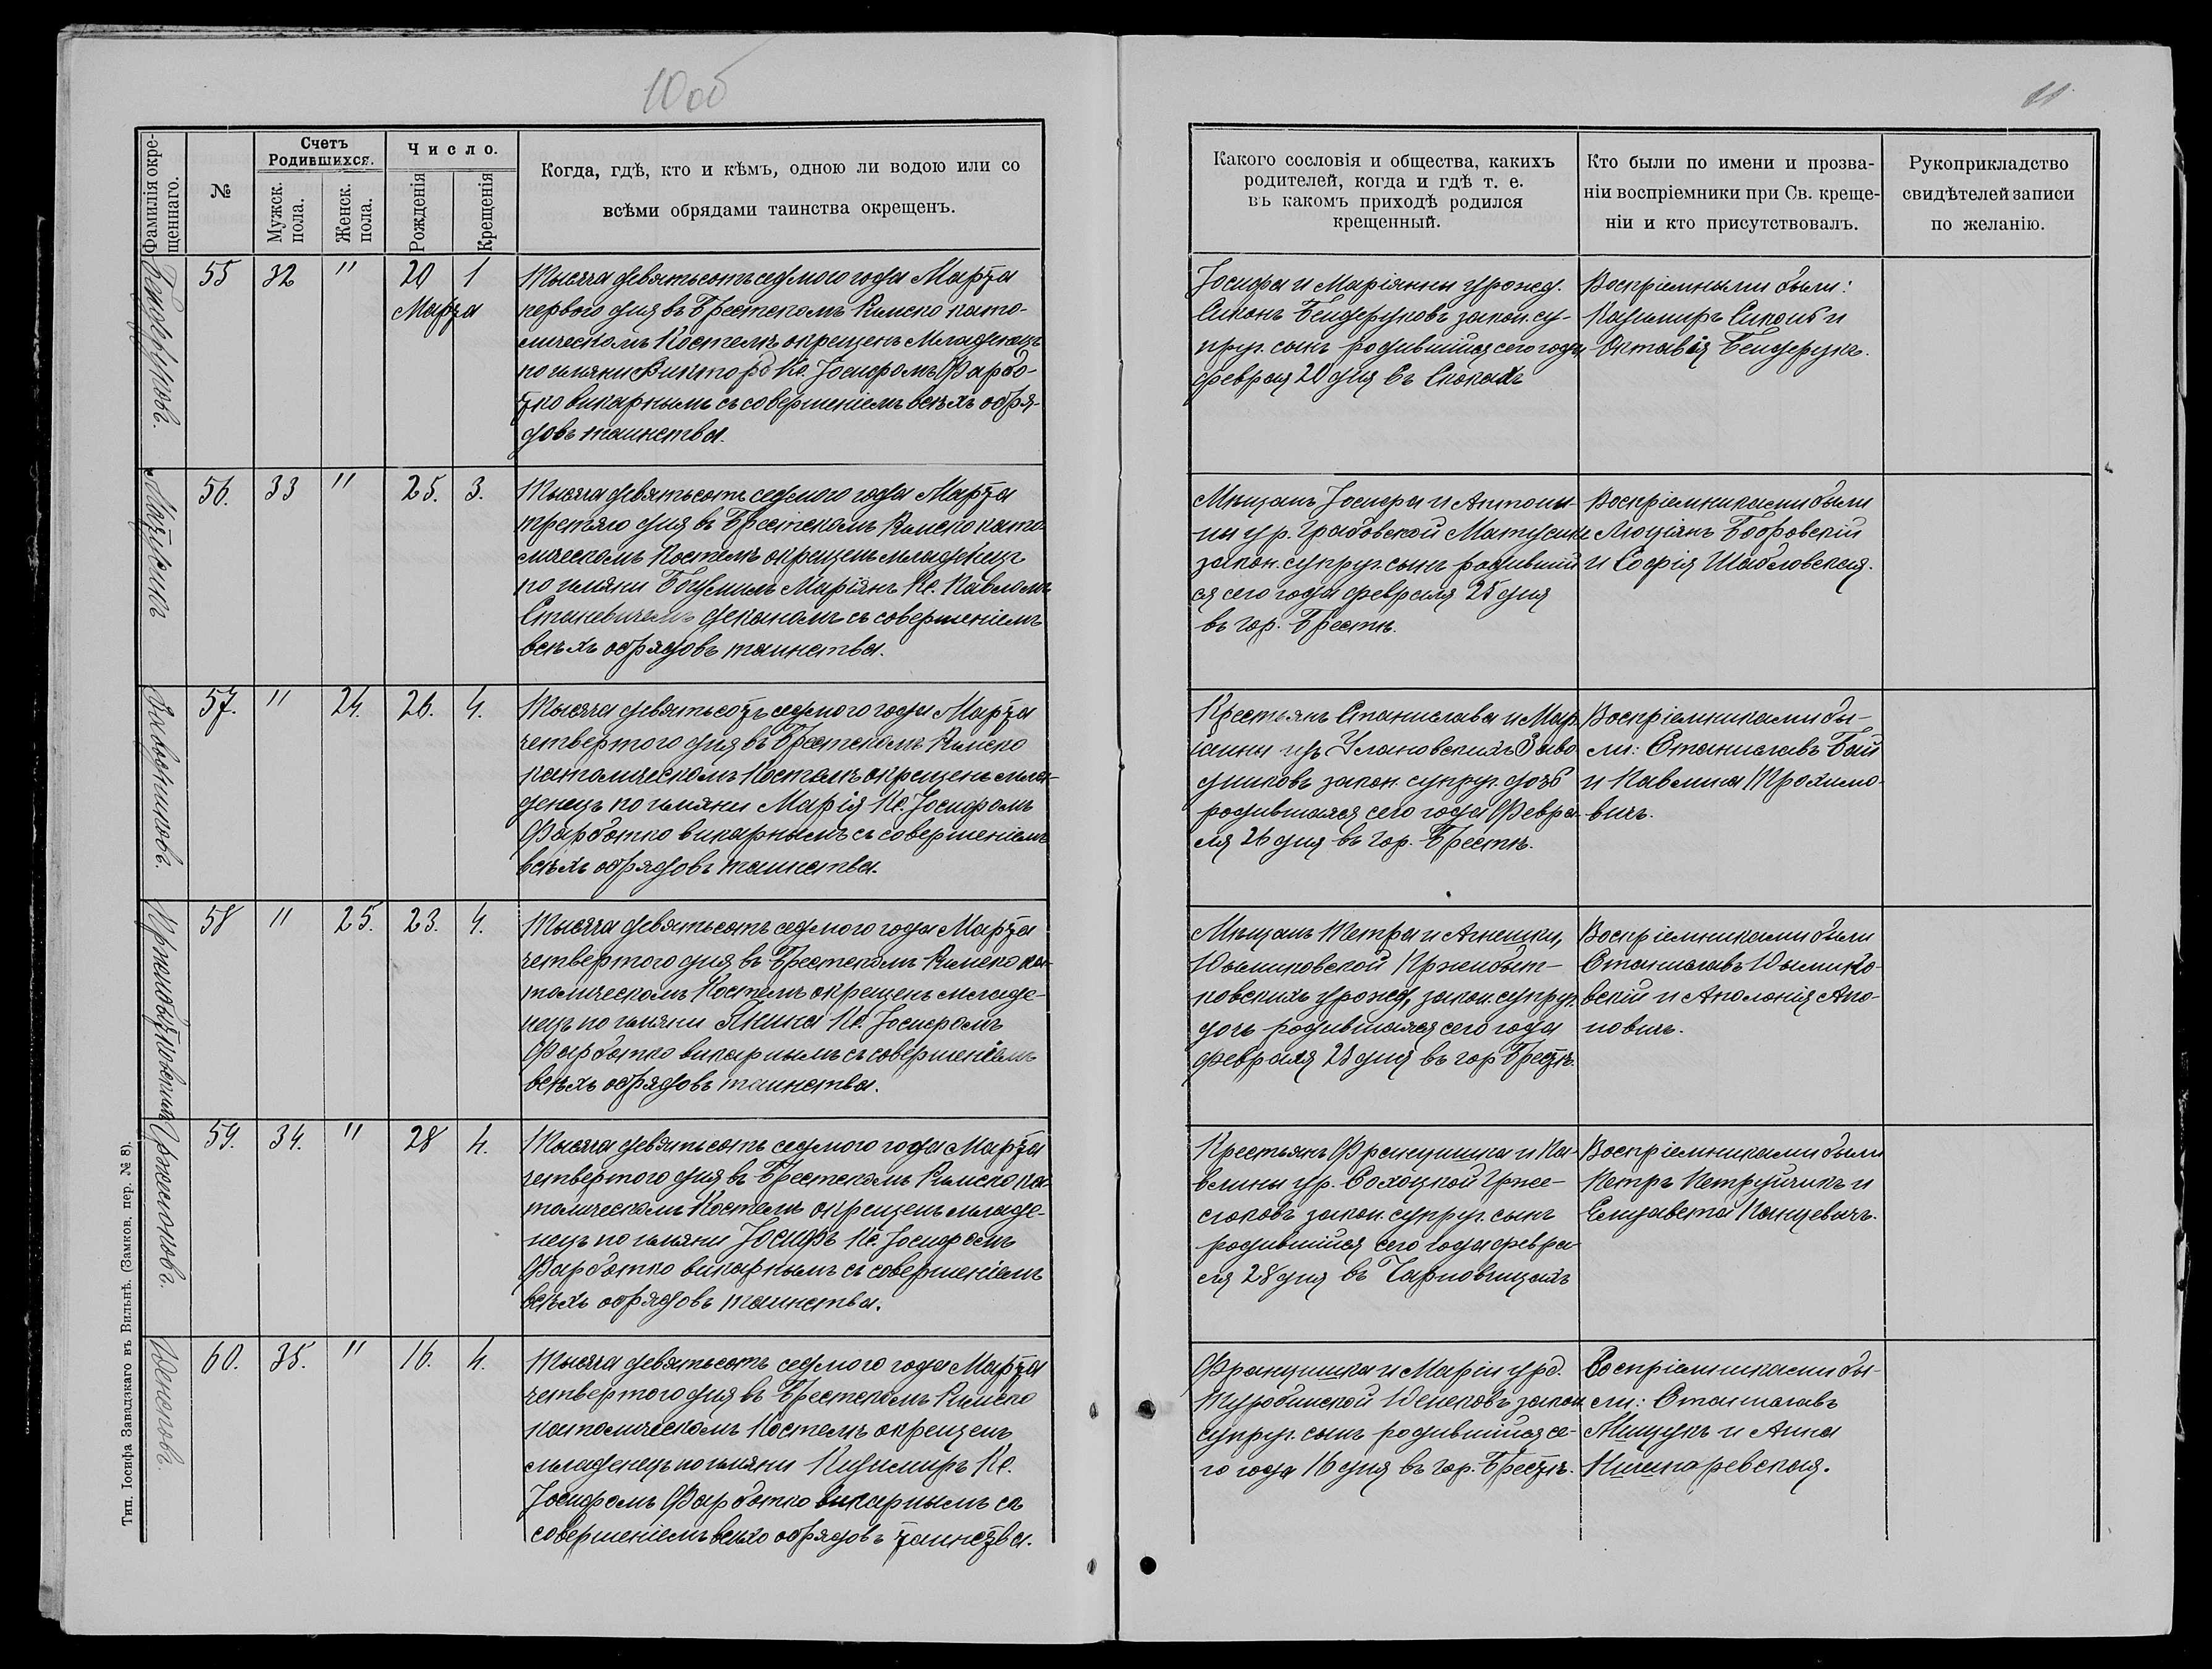 10 об
11
Фамилія окре-
щеннаго.
№
Счетъ
Родившихся.
Мужск.
пола.
Женск.
пола.
Число.
Рожденія
Крещенія
Когда, гдѣ, кто и кѣмъ, одною ли водою или со
всѣми обрядами таинства окрещенъ.
Какого сословія и общества, какихъ
родителей, когда и гдѣ т. е.
въ какомъ приходѣ родился
крещенный.
Кто были по имени и прозва-
ніи воспріемники при Св. креще-
ніи и кто присутствовалъ.
Рукоприкладство
свидѣтелей записи
по желанію.
Бендеруковъ.
55 32 " 20 1
Марта
Тысяча девятьсотъ седмого года Марта
первого дня въ Брестскомъ Римско като-
лическомъ Костелѣ окрещенъ Младенецъ
по имяни Викторъ Кс. Іосифомъ Фарбо-
тко викарнымъ съ совершеніемъ всѣхъ обря-
довъ таинства.
Іосифа и Маріянны урожд.
Сикокъ Бендеруковъ закон. су-
пруг. сынъ родившійся сего года
феврал 20 дня въ Скокахъ
Воспріемными были:
Казимиръ Сикокъ и
Октавія Бендерукъ.
Матусикъ
56. 33 " 25. 3.
Тысяча девятьсотъ седмого года Марта
третяго дня въ Брестскомъ Римско като-
лическомъ Костелѣ окрещенъ младенецъ
по имяни Богумилъ Маріянъ Кс. Павломъ
Станкевичемъ деканомъ съ совершеніемъ
всѣхъ обрядовъ таинства.
Мѣщанъ Іосифа и Антони-
ны ур. Грабовской Матусикъ
закон. супруг. сынъ родившій
ся сего года февраля 25 дня
въ гор. Брестѣ.
Воспріемниками были
Люціянъ Бобровскій
и Софія Шабловская.
Заводниковъ.
57. " 24. 26. 4.
Тысяча девятьсотъ седмого года Марта
четвертого дня въ Брестскомъ Римско
католическомъ Костелѣ окрещенъ мла-
денецъ по имяни Марія Кс. Іосифомъ
Фарботко викарнымъ съ совершеніемъ
всѣхъ обрядовъ таинства.
Крестьянъ Станислава и Мар
іанны изъ Улановскихъ Заво
дниковъ закон. супруг. дочь
родившаяся сего года Февра-
ля 26 дня въ гор. Брестѣ.
Воспріемниками бы-
ли: Станиславъ Бай
и Павлина Трохимо-
вичъ.
58 " 25. 23. 4.
Тысяча девятьсотъ седмого года Марта
четвертого дня въ Брестскомъ Римско ка-
толическомъ Костелѣ окрещенъ младе-
нецъ по имяни Янина Кс. Іосифомъ
Фарботко викарнымъ съ совершеніемъ
всѣхъ обрядовъ таинства.
Мѣщанъ Петра и Агнешки,
Пржибыт-
ковскихъ урожд, закон. супруг.
дочь родившаяся сего года
февраля 23 дня въ гор Брестѣ.
Воспріемниками были
Станиславъ
вскій и Аполонія Апо-
новичъ.
59. 34. " 28 4.
Тысяча девятьсотъ седмого года Марта
четвертого дня въ Брестскомъ Римско ка-
толическомъ Костелѣ окрещенъ младе-
нецъ по имяни Іосифъ Кс. Іосифомъ
Фарботко викарнымъ съ совершеніемъ
всѣхъ обрядовъ таинства.
Крестьянъ Францишка и Па-
влины ур. Сохоцкой Грже-
сюковъ закон. супруг. сынъ
родившійся сего года февра-
ля 28 дня въ Чарновщицахъ
Воспріемниками были
Петръ Петручикъ и
Елизавета Панцевичъ.
Венюковъ.
60. 35. " 16. 4.
Тысяча девятьсотъ седмого года Марта
четвертого дня въ Брестскомъ Римско
католическомъ Костелѣ окрещенъ
младенецъ по имяни Казимиръ Кс.
Іосифомъ Фарботко викарнымъ съ
совершеніемъ всѣхъ обрядовъ таинства.
Францишка и Маріи урд.
Туробинской закон
супруг. сынъ родившійся се-
го года 16 дня въ гор. Брестѣ.
Воспріемниками бы-
ли: Станиславъ
Мищукъ и Анна
Тип. Іосифа Завадзкаго въ Вильнѣ. (Замков. пер. № 8).